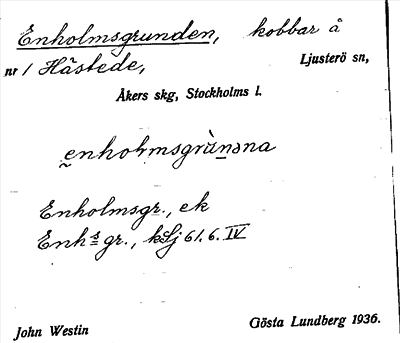 Enholmsgrunden, kobbar å
nr 1 Hästede, Ljusterö sn,
Åkers skg, Stockholms l.
Enholmsgr., ek
Enhs gr., kSj 61.6. IV
John Westin Gösta Lundberg 1936.